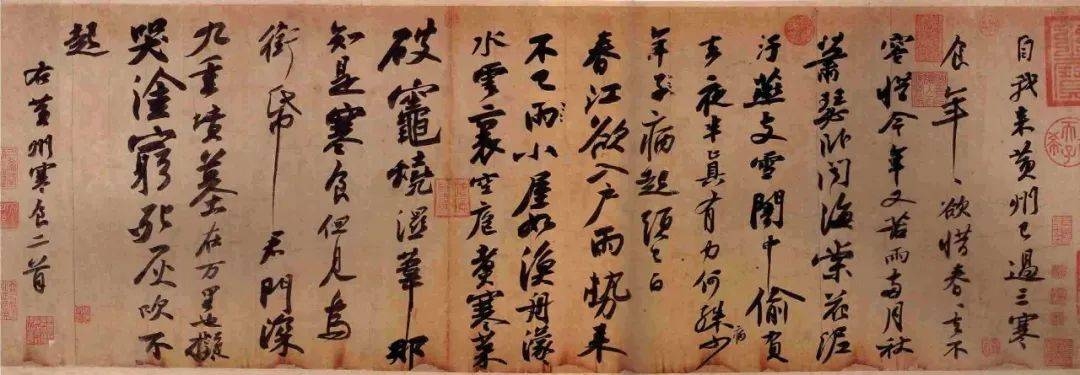 自我来黄州已過三寒
食年、欲惜春、去不
容惜今年又苦雨兩月秋
蕭瑟卧聞海棠花泥
汙燕支雪闇中偷負
去夜半真有力何殊病少
年子病起頭已白
春江欲入户雨勢来
不已雨小屋如漁舟濛々
水雲裏空庖煮寒菜
破竈燒濕葦那
知是寒食但見烏
銜帋君門深
九重墳墓在万里也擬
哭塗窮死灰吹不
起
右黄州寒食二首